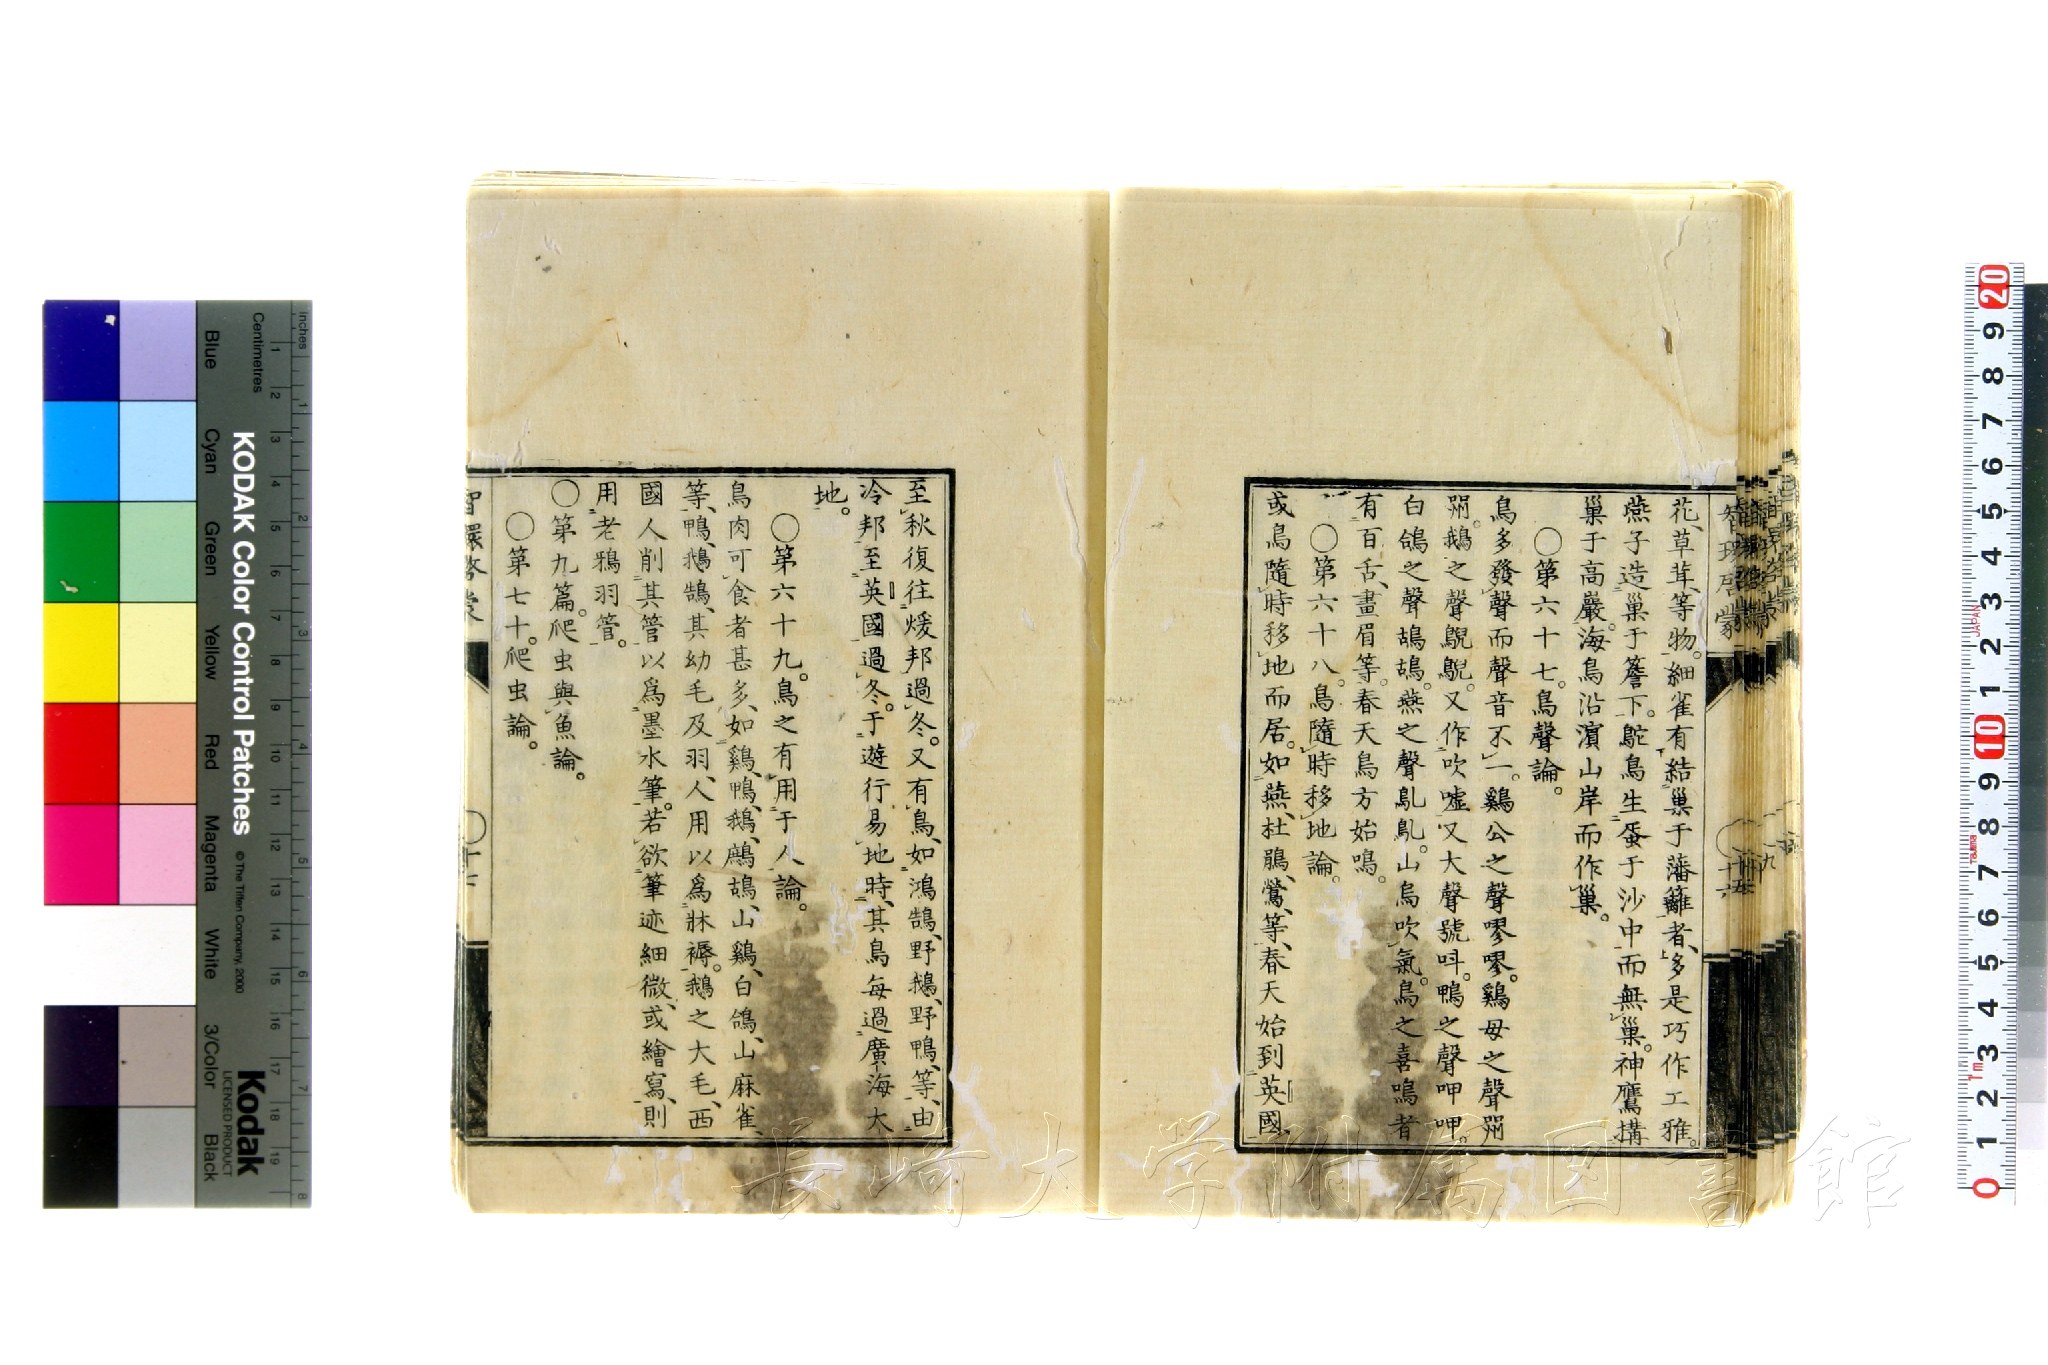 花、草茸、等物。細雀有結巢于藩籬者、多是巧作工雅。
燕子造巢于簷下。鴕鳥生蛋于沙中而無巢。神鷹搆
巢于高嚴。海鳥沿濵山岸而作巢。
〇第六十七。鳥聲論。
鳥多發聲而聲音不一。鷄公之聲嘐嘐。鷄母之聲喌
喌。鵝之聲鶃鶃。又作吹嘘又大聲號呌。鴨之聲呷呷。
白鴿之聲鴣鴣。燕之聲亂亂。山烏吹氣。鳥之喜鳴者
有百舌、畫眉等。春天鳥方始鳴。
〇第六十八。鳥隨時移地論。
或鳥隨時移地而居。如燕、杜鵑、鶯、等、春天始到英國、
至秋復往煖邦過冬。又有鳥、如鴻鵠、野鵝、野鴨、等、由
冷邦至英國過冬。于遊行易地時、其鳥每過廣海大
地。
〇第六十九。鳥之有用于人論。
鳥肉可食者甚多、如鷄、鴨、鵝、鷓鴣、山鷄、白鴿、山麻雀、
等、鴨、鵝、鵠、其幼毛及羽、人用以爲牀褥。鵝之大毛、西
國人削其管以爲墨水筆。若欲筆迹細微、或繪寫、則
用老鴉羽管。
〇第九篇。爬虫與魚論。
〇第七十。爬虫論。
智環啓蒙
智環啓蒙
十六
長崎大学附属図書館
KODAK Color Control Patches
© The Tiffen Company, 2000
Kodak
LICENSED PRODUCT
Inches
Centimetres
Blue
Cyan
Green
Yellow
Red
Magenta
White
3/Color
Black
1 2 3 4 5 6 7 8 9 10 11 12 13 14 15 16 17 18 19
1 2 3 4 5 6 7 8
20 9 8 7 6 5 4 3 2 1 10 9 8 7 6 5 4 3 2 1 0
JAPAN
Tajima
1m